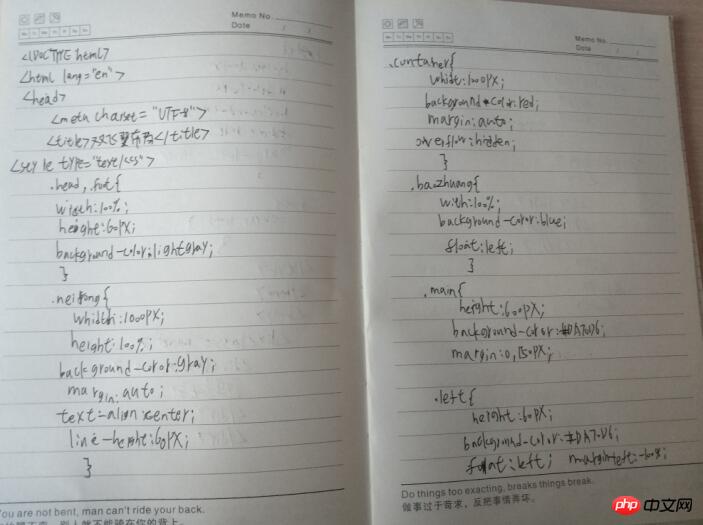 Memo No.
Date / /
<!DOCTYPE html>
<html lang="en">
<head>
<meta charset="UTF-8">
<title>双飞翼布局</title>
<style type="text/css">
.head,.foot{
width:100%;
height:60px;
background-color:lightgray;
}
.neirong{
whidth:1000px;
height:100%;
background-color:gray;
margin:auto;
text-align:center;
line-height:60px;
}
You are not bent, man can't ride your back.
Memo No.
Date / /
.container{
whidt:1000px;
background-color:red;
margin:auto;
overflow:hidden;
}
.baozhuang{
with:100%;
background-color:blue;
float:left;
}
.main{
height:600px;
background-color:
margin:0,150px;
.left{
height:60px;
background-color:
float:left; margin-left:-100%;
Do things too exacting, breaks things break.
做事过于苛求，反把事情弄坏。
php 中文网